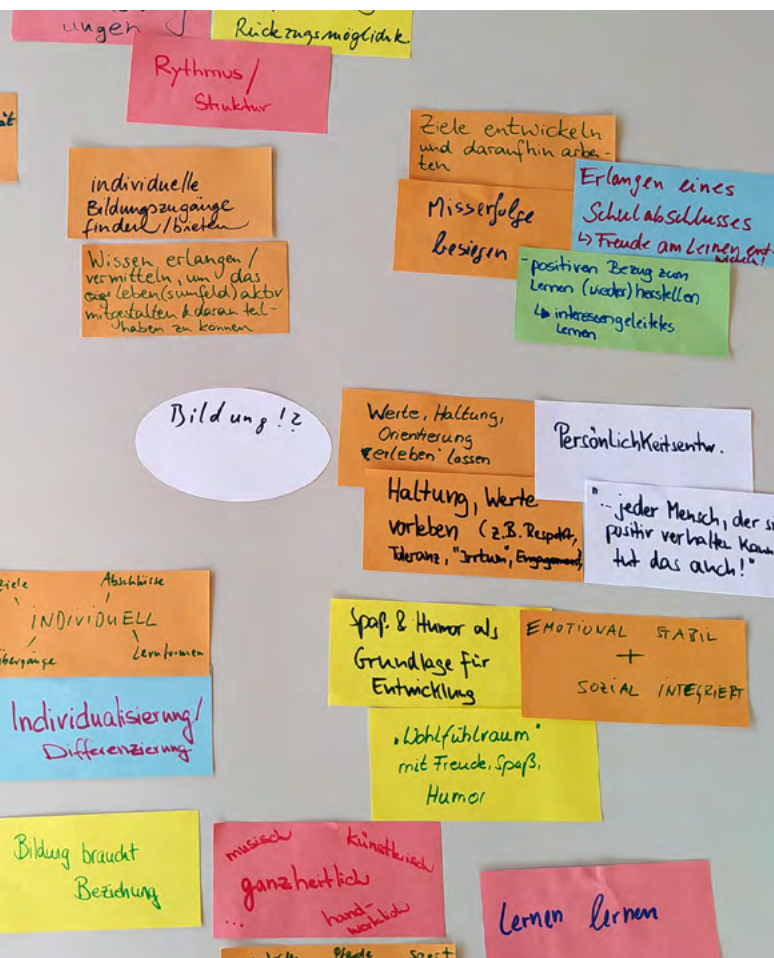 ungen
Rückzugsmöglichk
Rythmus/
Struktur
individuelle
Bildungszugänge
finden/bieten
Wissen erlangen/
vermitteln, um das
Leben(sumfeld) aktiv
mitgestalten & daran teil-
haben zu können
Ziele entwickeln
und daraufhin arbei-
ten
Misserfolge
besiegen
Erlangen eines
Schulabschlusses
↳ Freude am Lernen ent-
wickeln!
- positiven Bezug zum
Lernen (wieder) herstellen
↳ interessengeleitetes
Lernen
Bildung!?
Werte, Haltung,
Orientierung
"erleben" lassen
Persönlichkeitsentw.
Haltung, Werte
vorleben (z.B. Respekt,
Toleranz, "Irrtum", Engagement)
"...jeder Mensch, der
positiv verhalten kann
tut das auch!"
ziele Abschlüsse
INDIVIDUELL
Übergänge Lernformen
Individualisierung/
Differenzierung
Spaß & Humor als
Grundlage für
Entwicklung
EMOTIONAL STABIL
+
SOZIAL INTEGRIERT
"Wohlfühlraum"
mit Freude, Spaß,
Humor
Bildung braucht
Beziehung
musisch künstlerisch
ganzheitlich
... hand-
werklich
Lernen lernen
Pferde Sport